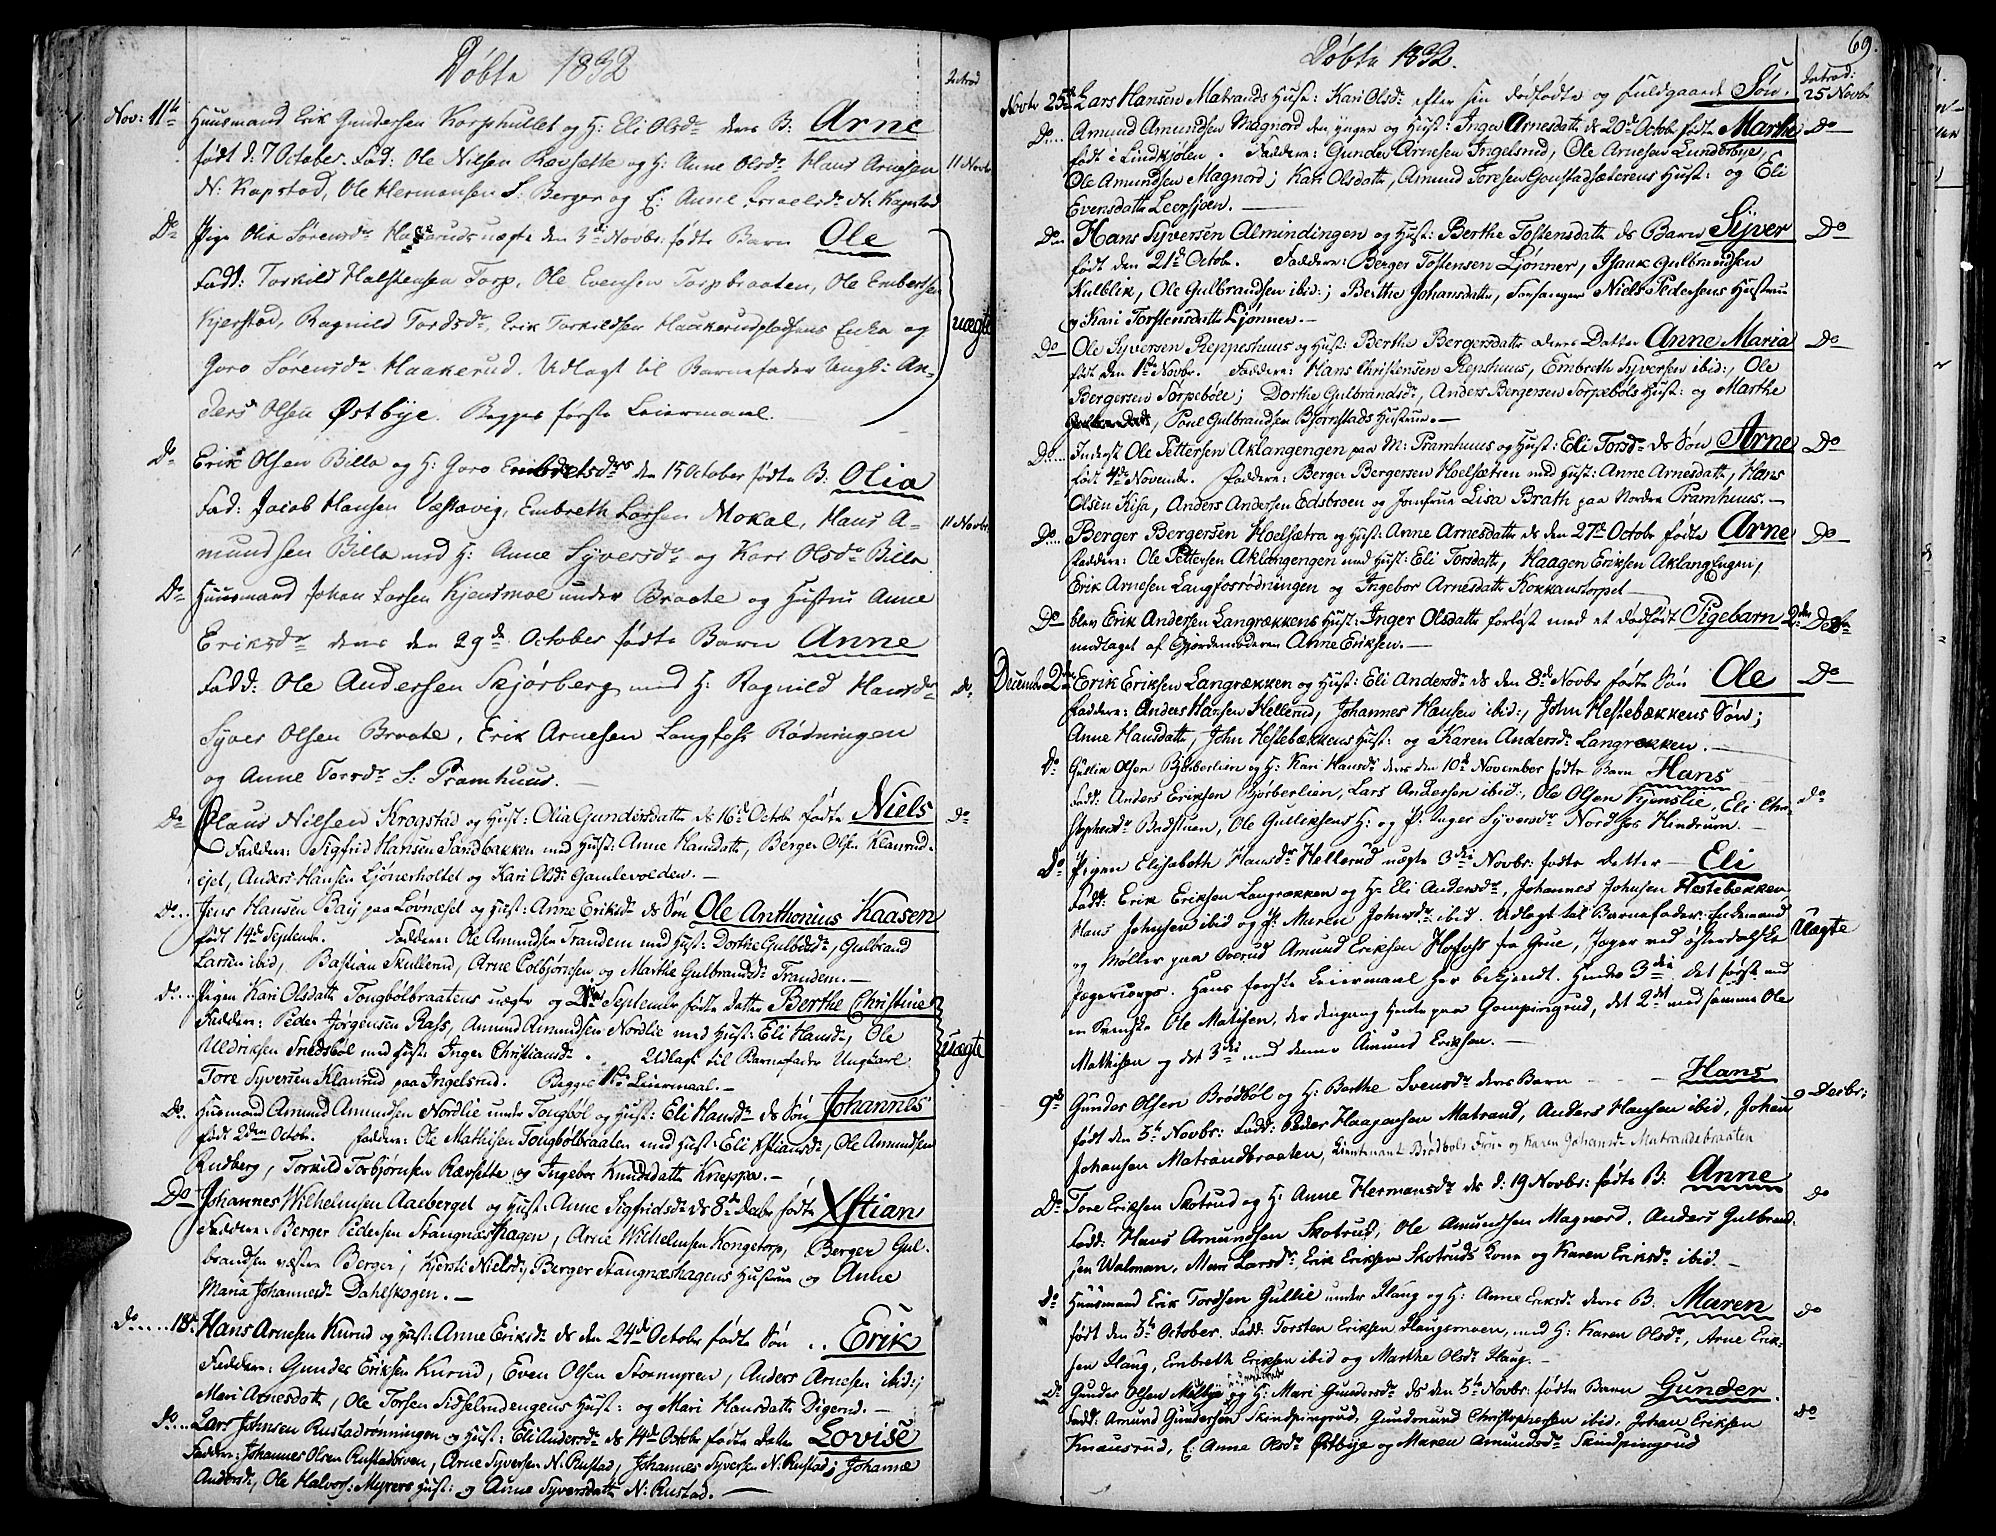 Døbte 1832
Introd
Nov: 11te Huusmand Erik Gundersen Korphullet og H: Eli Olsdr deres B: Arne
født d. 7 October. Fad: Ole Nilsen Rævsette og H: Anne Olsdr Hans Arnesen 11 Novbr
N: Kapstad, Ole Hermansen S. Berger og E: Anne Israelsdr N: Kapstad
Do Pige Olia Sørensdr Haakeruds uægte den 3de Novbr: fødte Barn Ole
Fadd: Torkild Halstensen Torp, Ole Evensen Torpbraaten, Ole Embretsen
Kjerstad, Ragnild Tordsdr, Erik Torkildsen Haakerudpladsens Enke og uægte
Goro Sørensdr Haakerud. Udlagt til Barnefader Ungk: An-
ders Olsen Østbye. Begges første Leiermaal.
Do Erik Olsen Billa og H: Goro Embretsdrs den 15 October fødte B: Olia
Fad: Jacob Hansen Væstavig, Embreth Larsen Mokal, Hans A- 11 Novbr
mundsen Billa med H: Anne Syversdr og Kari Olsdr Billa
Do Huusmand Johan Larsen Kjensmoe under Braate og Hustru Anne
Eriksdr deres den 29de October fødte Barn Anne
Fadd: Ole Andersen Skjørberg med H: Ragnild Hansdr Do
Syver Olsen Braate, Erik Arnesen Langfoss Rødningen
og Anne Torsdr S: Pramhuus.
Do Claus Nilsen Krogstad og Hust: Olia Gundersdatter ds 16de Octobr fødte Niels Do
Faddere: Sigfrid Hansen Sandbakken med Hust: Anne Hansdatter, Berger Olsen Klanrud-
ejet, Anders Hansen Ljønerholtet og Kari Olsdr Gamlevolden.
Do Jens Hansen Baij paa Løvnæset og Hust: Anne Eriksdr ds Søn Ole Anthonius Kaasen
født 14de Septembr. Faddere: Ole Amundsen Trandem med Hust: Dorthe Gulbrdsdr, Gulbrand
Larsen ibid, Bastian Skullerud, Arne Colbjørnsen og Marthe Gulbrandsdr Trandem.
Do Pigen Kari Olsdatter Tongbølbraatens uægte og 21de Septembr fødte Datter Berthe Christine
Faddere: Peder Jørgensen Rafs, Amund Amundsen Nordlie med Hust: Eli Hansdr, Ole
Uldriksen Snedsbøl med Hust: Inger Christiansdr. Udlagt til Barnefader Ungkarl uægte
Tore Syversen Klanrud paa Ingelsrud. Begges 1ste Leiermaal.
Do Husmand Amund Amundsen Nordlie under Tongbøl og Hust: Eli Hansdr ds Søn Johannes
født 2den Octobr. Faddere: Ole Mathisen Tongbølbraaten med Hust: Eli Xstiansdr, Ole Amundsen
Rudberg, Torkild Torbjørnsen Rævsette og Ingebor Knudsdatter Kneppa.
Do Johannes Wilhelmsen Aaeberget og Hust: Anne Sigfridsdr ds 8de Octobr fødte Xstian
Faddere: Berger Pedersen Stangnæshagen, Arne Wilhelmsen Kongetorp, Berger Gul-
brandsen næstre Berger; Kjersti Nielsdr, Berger Stangnæshagens Hustrue og Anne
Maria Johannesdr Dahlskogen.
Do 18de Hans Arnesen Kurud og Hust: Anne Eriksdr ds den 24de Octobr fødte Søn Erik
Faddere: Gunder Eriksen Kurud, Even Olsen Stormyren, Anders Arnesen ibid:;
Mari Arnesdatter, Ole Torsen Sidselrudengens Hust: og Mari Hansdatter Digerud.
Do Lars Johnsen Rustadrønningen og Hust: Eli Andersdr ds 14de Octobr fødte Datter Lovise
Faddere: Johannes Olsen Rustadstuen, Arne Syversen N: Rustad, Johannes Syversen N: Rustad; Johanne
Andersdr, Ole Halvors: Myrers Hust: og Anne Syversdatter N: Rustad.
69.
Døbte 1832.
Introd:
Novbr 25de Lars Hansen Matrands Hust: Kari Olsdr efter sin dødfødte og fuldgaaede Søn. 25 Novbr
Do Amund Amundsen Magnord den yngre og Hust: Inger Arnesdatter ds 20de Octobr fødte Marthe Do
født i Lindkjølen. Faddere: Gunder Arnesen Ingelsrud, Ole Arnesen Lunderbye,
Ole Amundsen Magnord; Kari Olsdatter, Amund Toresen Gonstadsæterens Hust: og Eli
Evensdatter Leersjøen.
Do Hans Syversen Almindingen og Hust: Berthe Tostensdatter ds Barn Syver Do
født den 21de Octobr. Faddere: Berger Tostensen Ljønner, Isaak Gulbrandsen
Kulblik, Ole Gulbrandsen ibid:; Berthe Johansdatter, Forsanger Niels Pedersens Hustrue
og Kari Torstensdatter Ljønner.
Do Ole Syversen Reppeshuus og Hust: Berthe Bergersdatter deres Datter Anne Maria Do
født den 1ste Novbr. Faddere: Hans Christensen Repshuus, Embreth Syversen ibid:, Ole
Bergersen Torpebøle; Dorthe Gulbrandsdr, Anders Bergersen Torpebøls Hust: og Marthe
Poul Gulbrandsen Bjørnstads Hustrue.
Do Inderst Ole Pettersen Aklangengen paa M: Pramhuus og Hust: Eli Torsdr ds Søn Arne Do
født 4de Novembr. Faddere: Berger Bergersen Hoelsætren med Hust: Anne Arnesdatter, Hans
Olsen Kisa, Anders Andersen Edsbroen og Jomfrue Lisa Brath paa Nordre Pramhuus.
Do Berger Bergersen Hoelsætra og Hust: Anne Arnesdatter ds den 27de Octobr fødte Arne Do
Faddere: Ole Pettersen Aklangengen med Hust: Eli Torsdatter, Haagen Eriksen AklangEngen,
Erik Arnesen Langfosrødningen og Ingebor Arnesdatter Kokkanstorpet
Do blev Erik Andersen Langrækkens Hust: Inger Olsdatter forløst med et dødfødt Pigebarn 2den Decbr
modtaget af Gjordemoderen Anne Eriksen.
Decembr 2den Erik Eriksen Langrækken og Hust: Eli Andersdr ds den 8de Novbr fødte Søn Ole Do
Faddere: Anders Hansen Hellerud, Johannes Hansen ibid:, John Hestebækkens Søn;
Anne Hansdatter, John Hestebækkens Hust: og Karen Andersdr Langrækken.
Do Gullik Olsen Bjørberlien og H: Kari Hansdr deres den 10de November fødte Barn Hans
Fadd: Anders Eriksen Bjørberlien, Lars Andersen ibid:, Ole Olsen Tjenslie, Eli Chri- Do
stophersdr Badstuen, Ole Gulliksens H: og P: Inger Syversdr Nordsos Hindrum.
Do Pigen Elisabeth Hansdr Hellerud uægte 3die Novbr: fødte Datter Eli
Fadd: Erik Eriksen Langrækken og H: Eli Andersdr, Johannes Johnsen Hestebekken
Hans Johnsen ibid og P: Maren Johnsdr ibid. Udlagt til Barnefader: Enkemand Uægte
og Møller paa Overud Amund Eriksen Hofoss fra Grue, Jæger ved østerdalske
Jægercorps. Hans første Leiermaal her bekjendt. Hendes 3die det første med
en Svenske Ole Matisen, der dengang hærte paa Gampingrud, det 2det med samme Ole
Mathisen og det 3die med denne Amund Eriksen.
9de Gunder Olsen Brødbøl og H: Berthe Svensdr deres Barn Hans 9 Decbr:
født den 5te Novbr: Fadd: Peder Haagensen Matrand, Anders Hansen ibid, Johan
Johansen Matrandbraaten, Lieutenant Brødbols Frue og Karen Johansdr Matrandsbraaten
Do Tore Eriksen Skotrud og H: Anne Hermansdr ds d: 19 Novbr: fødte B: Anne Do
Fadd: Hans Amundsen Skotrud, Ole Amundsen Magnord, Anders Gulbrand-
sen Walman, Mari Larsdr, Erik Eriksen Skotruds Kone og Karen Eriksdr ibid.
Do Huusmand Erik Tordsen Gullie under Haug og H: Anne Eriksdr deres B: Maren Do
født den 5te October. Fadd: Torsten Eriksen Haugsmoen, med H: Karen Olsdr, Arne Erik-
sen Haug, Embreth Eriksen ibid og Marthe Olsdr Haug.
Do Gunder Olsen Mellbye og H: Mari Gundersdr ds den 5te Novbr: fødte Barn Gunder
Fadd: Amund Gundersen Skindpingrud, Gundmund Christophersen ibid, Johan Eriksen Do
Knausrud, E: Anne Olsdr Østbye og Maren Amundsdr Skindpingrud